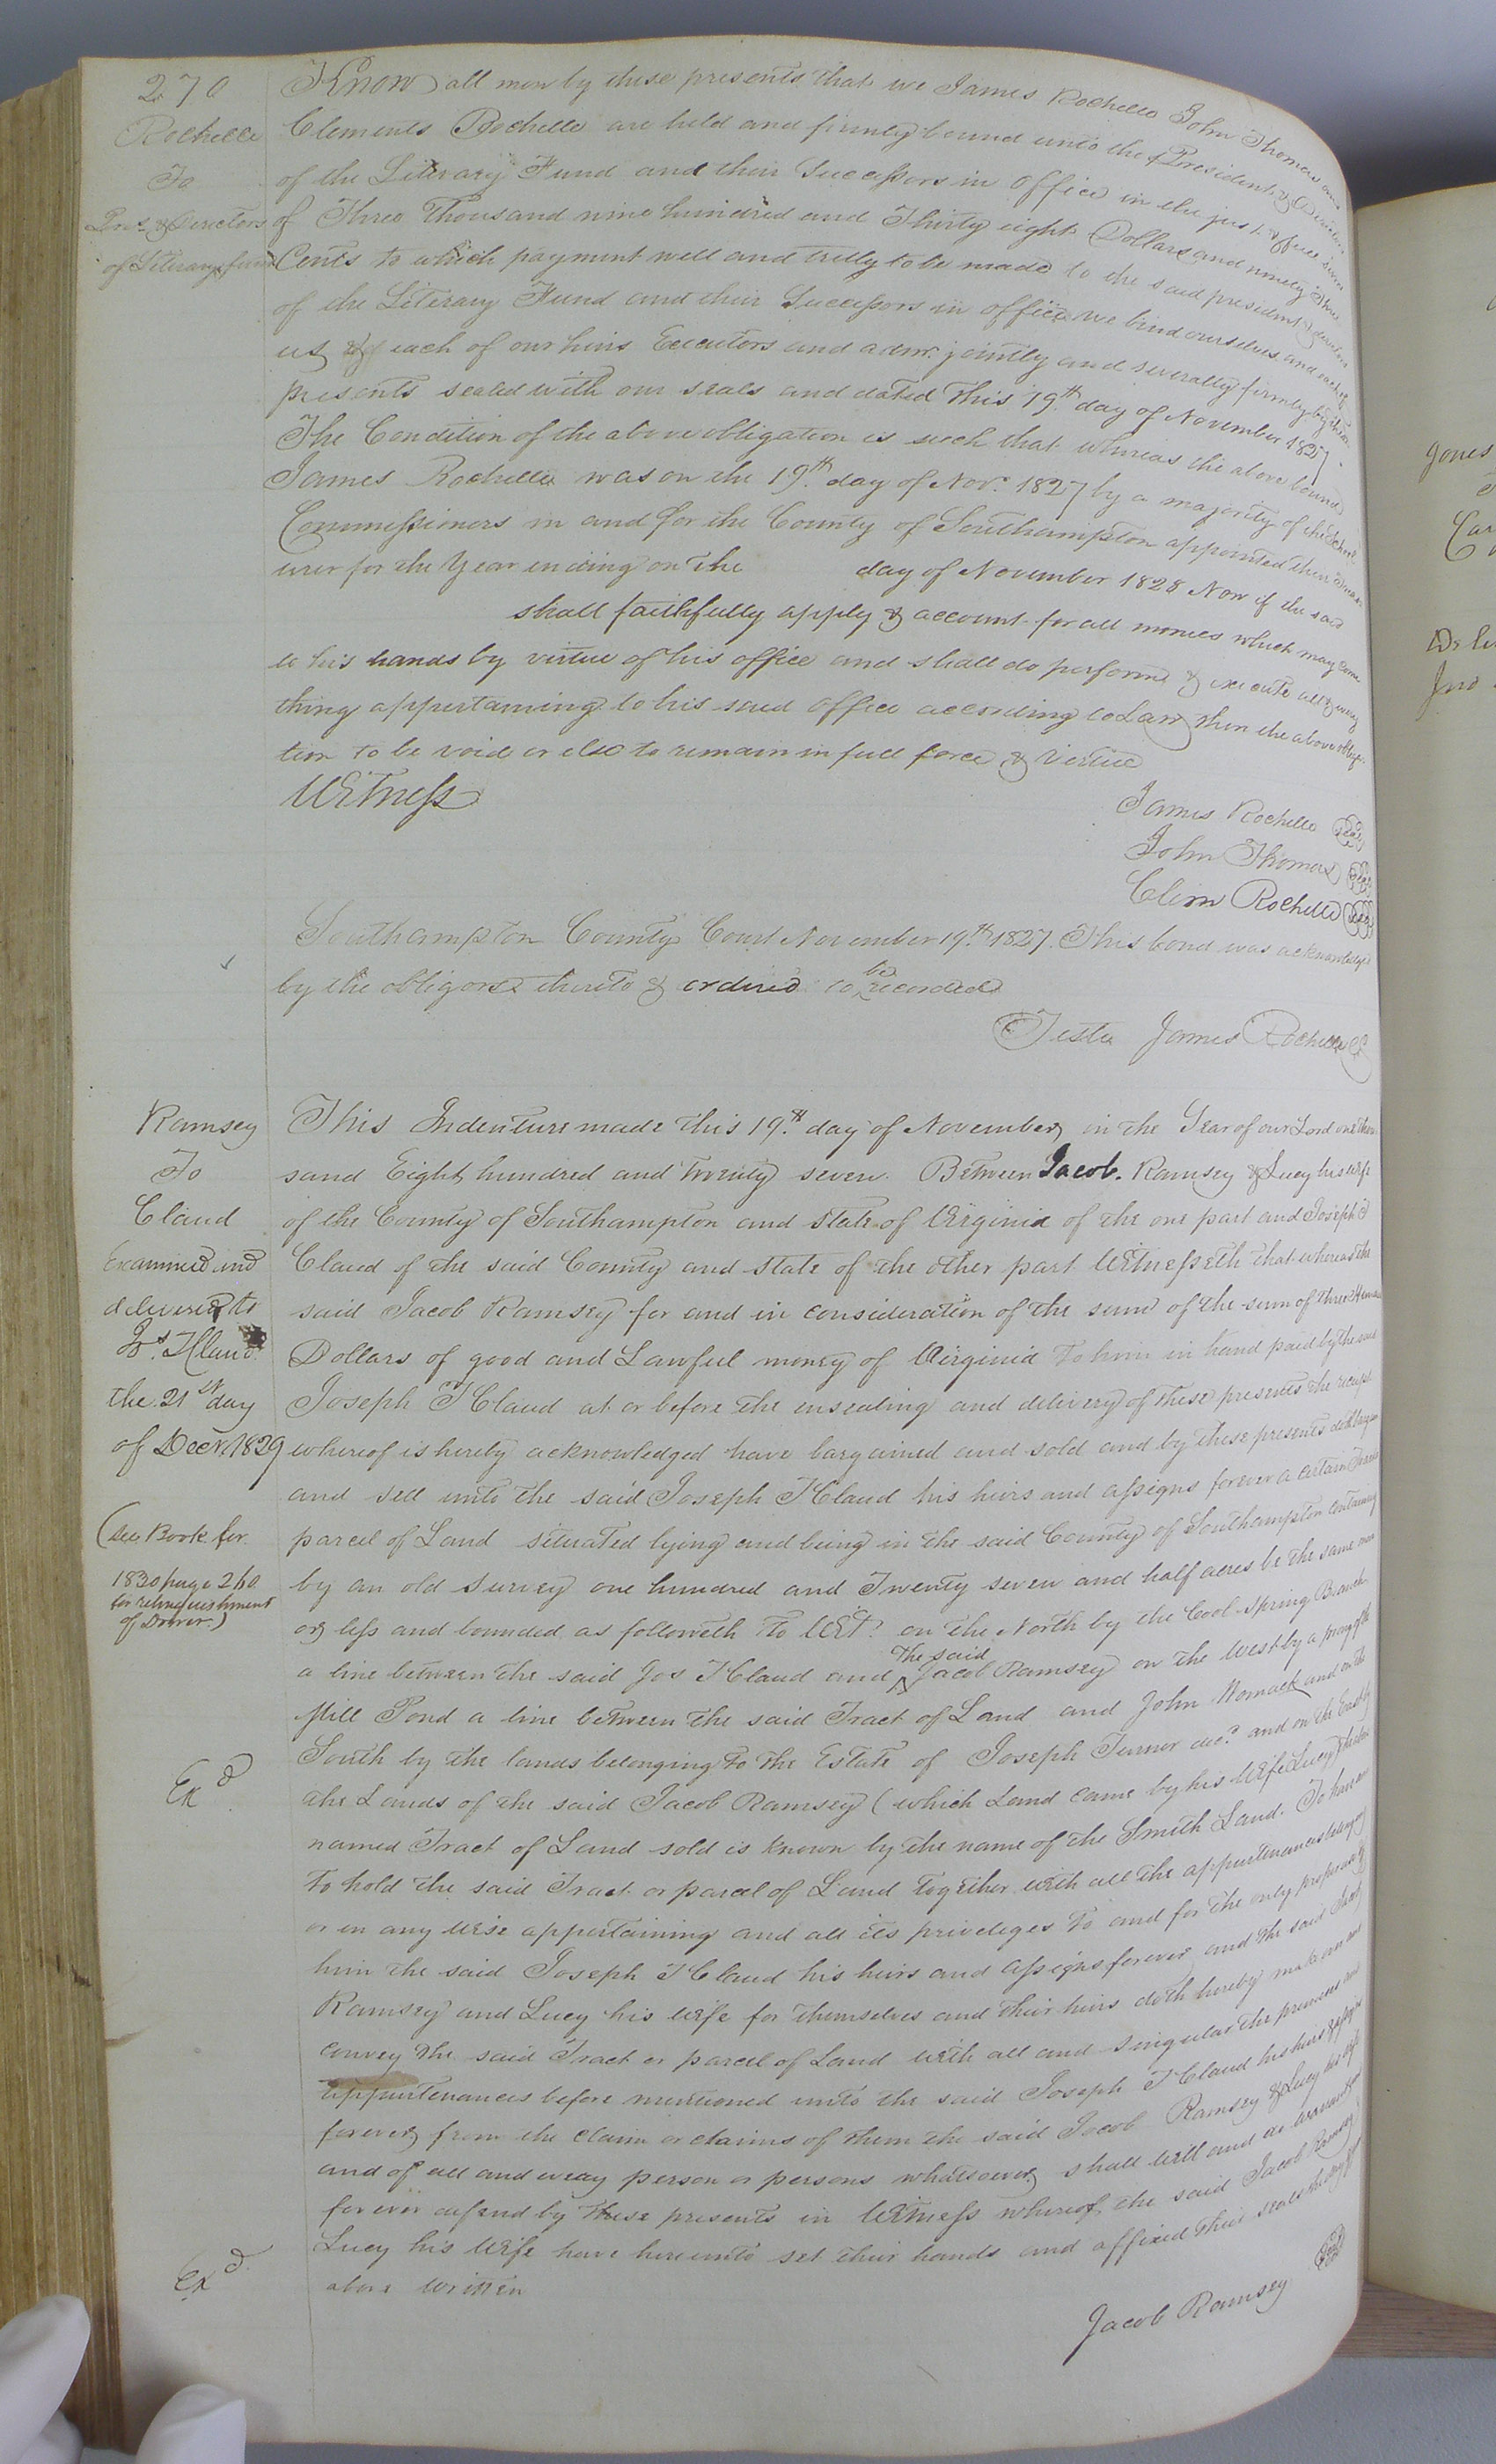 270
Rochelle
To
Pres. & Directors
of Literary fund
Know all men by these presents that we James Rochelle John Thomas and
Clements Rochelle are held and firmly bound unto the President & Directors
of the Literary Fund and their Successors in office in the just & full sum
of Three Thousand nine hundred and Thirty eight Dollars and ninety three
Cents to which payment well and trully to be made to the said president & directors
of the Literary Fund and their Successors in office we bind ourselves and each of
us & each of our heirs Executors and admr. jointly and severally firmly by these
presents sealed with our seals and dated this 19th day of November 1827.
The Condition of the above obligation is such that whereas the above bound
James Rochelle was on the 19th day of Novr. 1827 by a majority of the School
Commissioners in and for the County of Southampton appointed their Treas
urer for the Year ending on the day of November 1828 Now if the said
shall faithfully apply & account for all monies which may come
to his hands by virtue of his office and shall do perform & execute all & every
thing appertaining to his said office according to Law then the above obliga
tion to be void or else to remain in full force & virtue
Witness
James Rochelle Seal
John Thomas Seal
Clem Rochelle Seal
Southampton County Court November 19th 1827. This bond was acknowledged
by the obligors thereto & ordered to be recorded
Teste James Rochelle C
Ramsey
To
Claud
Examined and
delivered to
Jos. T Claud
the 21st day
of Decr. 1829
(see Book for
1830 page 260
for relinquishment
of Dower.)
Exd
Exd
This Indenture made this 19th day of November in the Year of our Lord one thou
sand Eight hundred and twenty seven. Between Jacob. Ramsey & Lucy his wife
of the County of Southampton and State of Virginia of the one part and Joseph T
Claud of the said County and State of the other part Witnesseth that whereas the
said Jacob Ramsey for and in consideration of the sum of the sum of three Hundred
Dollars of good and Lawful money of Virginia to him in hand paid by the said
Joseph T Claud at or before the ensealing and delivery of these presents the receipt
whereof is hereby acknowledged have bargained and sold and by these presents doth bargain
and sell unto the said Joseph T Claud his heirs and assigns forever a certain Tract or
parcel of Land situated lying and being in the said County of Southampton containing
by an old survey one hundred and Twenty seven and half acres be the same more
or less and bounded as followeth to Wit: on the North by the Cool Spring Branch
a line between the said Jos T Claud and the said Jacob Ramsey on the West by a prong of the
Mill Pond a line between the said Tract of Land and John Womack and on the
South by the lands belonging to the Estate of Joseph Turner decd. and on the East by
the Lands of the said Jacob Ramsey (which Land came by his Wife Lucy) the above
named Tract of Land sold is known by the name of the Smith Land. To have and
to hold the said Tract or parcel of Land together with all the appurtenances belonging
or in any wise appertaining and all its privileges to and for the only proper use of
him the said Joseph T Claud his heirs and assigns forever and the said Jacob
Ramsey and Lucy his wife for themselves and their heirs doth hereby make over and
convey the said Tract or parcel of Land with all and singular the premises and
appurtenances before mentioned unto the said Joseph T Claud his heirs & assigns
forever, from the claim or claims of them the said Jacob Ramsey & Lucy his wife
and of all and every person or persons whatsoever, shall will and do warrant and
forever defend by these presents in witness whereof, the said Jacob Ramsey
Lucy his wife have hereunto set their hands and affixed their seals the day first
above written
Jacob Ramsey Seal
Jones
Car